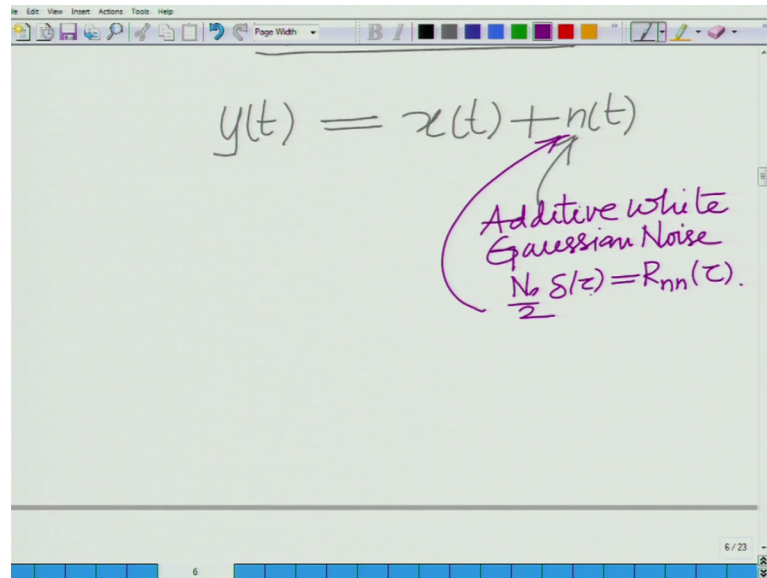 Edit View Insert Actions Tools Help
Page Width
B I
y(t) = x(t)+n(t)
Additive white
Gaussian Noise
N₀/2 δ(τ) = Rnn(τ).
6 / 23
6